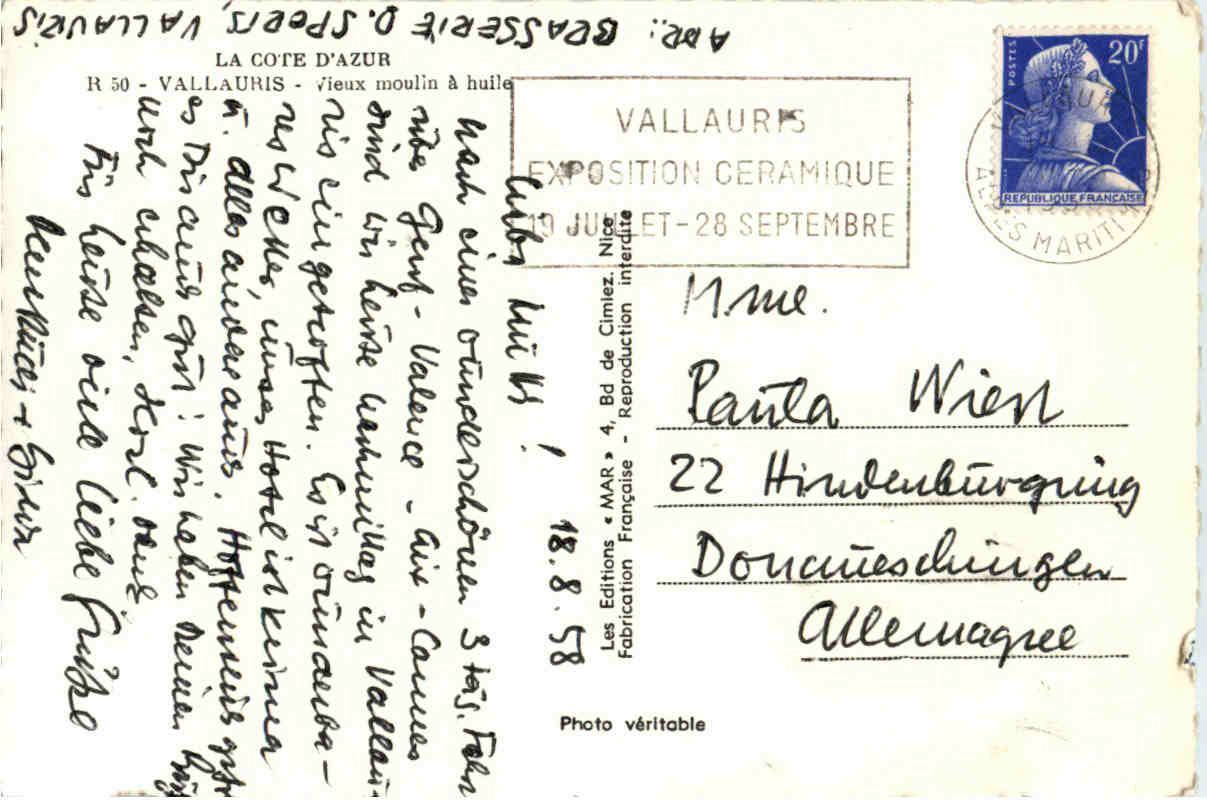 ADR.: BRASSERIE D. SPORTS, VALLAURIS
LA COTE D'AZUR
R 50 - VALLAURIS - Vieux moulin à huile
VALLAURIS
EXPOSITION CERAMIQUE
19 JUILLET - 28 SEPTEMBRE
POSTES
20F
REPUBLIQUE FRANÇAISE
ALPES MARITIMES
Liebe
!
18.8.58
nach einer wunderschönen 3 täg. Fahrt
über Genf - Valence - Aix - Cannes
sind wir heute nachmittag in Vallau-
ris eingetroffen. Es ist wunderba-
res Wetter, unser Hotel ist prima
u. alles andere auch. Hoffentlich geht
es Dir auch gut! Wir haben Deinen
noch erhalten, herzl. Dank
Für heute viele liebe Grüße
Les Editions « MAR » 4, Bd de Cimiez. Nice
Fabrication Française - Reproduction interdite
Mme.
Paula Wiest
22 Hindenburgring
Donaueschingen
Allemagne
Photo véritable